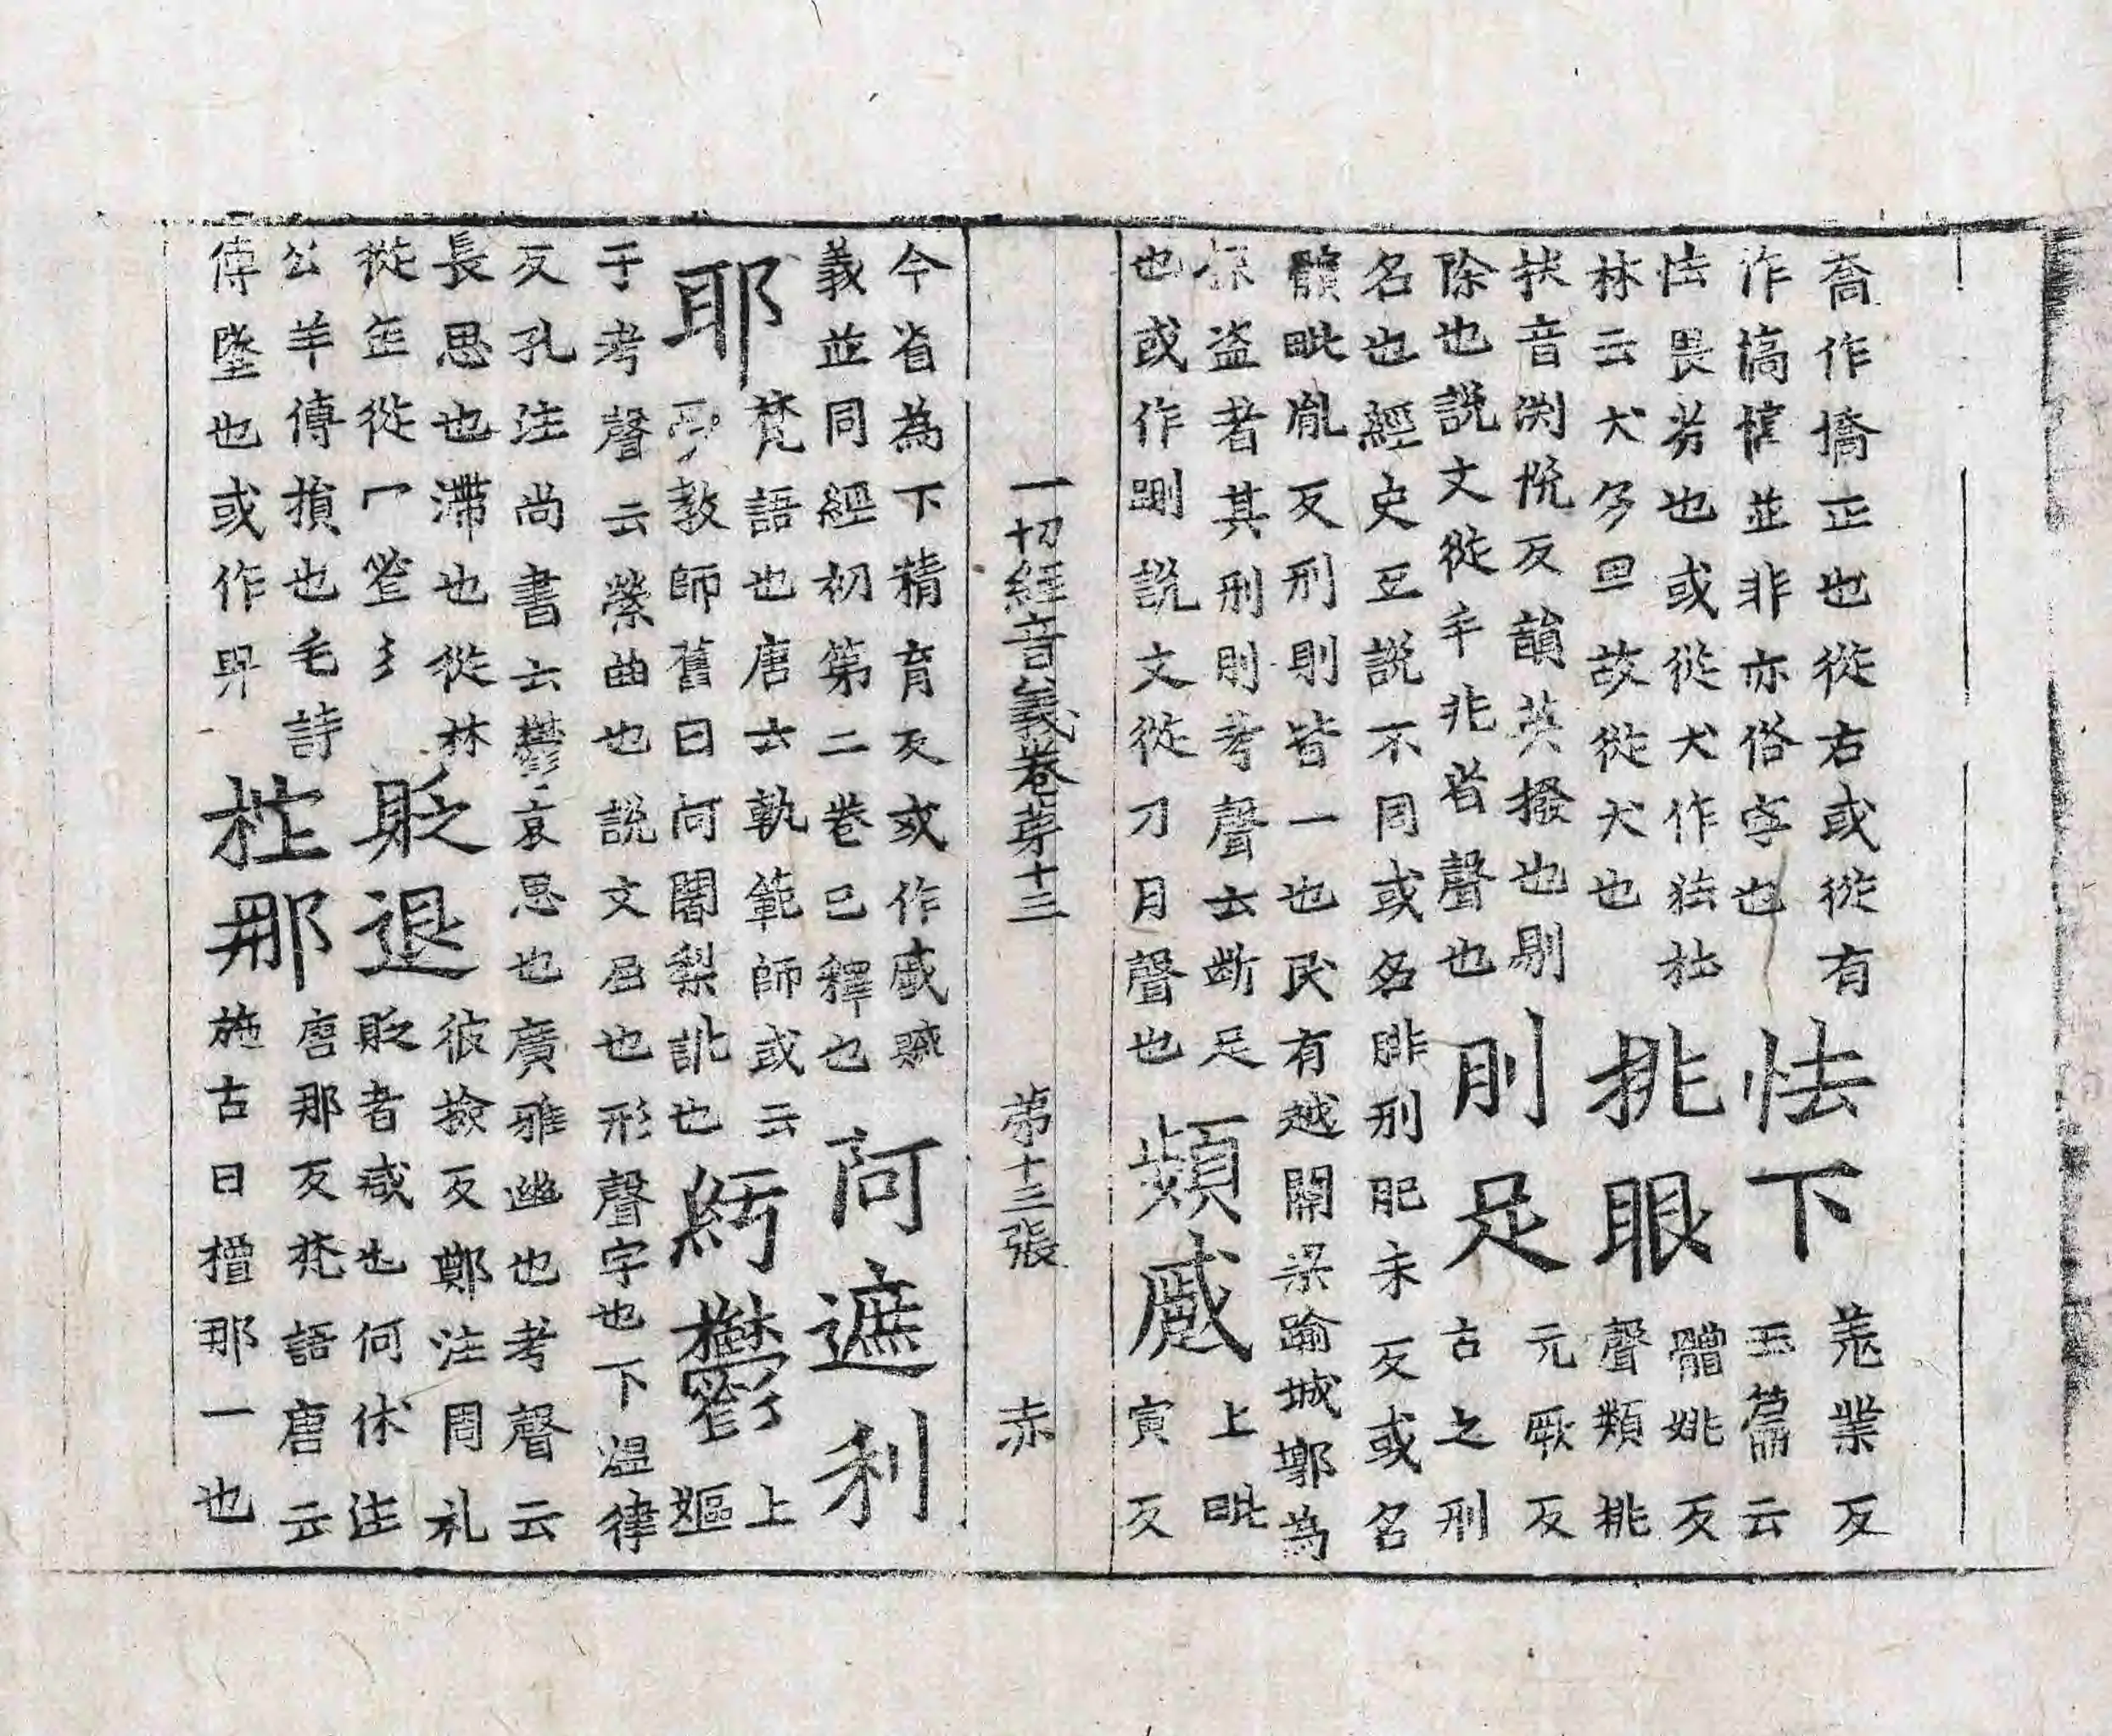 喬作撟正也從右或從有
作撟㩁並非亦俗字也
怯下
羗業反
玉篇云
怯畏劣也或從犬作㹤杜
林云犬多畏故從犬也
挑眼
體姚反
聲類挑
抉音渕恱反韻英撥也剔
除也說文從手兆省聲也
刖足
元厥反
古之刑
名也經史互說不同或名腓刑肥未反或名
髕毗胤反刑刖皆一也民有越關梁踰城郭為
盜者其刑刖考聲云斷足
也或作跀說文從刀月聲也
頻蹙
上毗
寅反
一切經音義卷第十三 第十三張 赤
今省為下精育反或作慼
義並同經初第二卷已釋也
阿遮利
耶
梵語也唐云軌範師或云
教師舊曰阿闍梨訛也
紆鬱
上
嫗
于考聲云縈曲也說文屈也形聲字也下溫律
反孔注尚書云鬱哀思也廣雅幽也考聲云
長思也滯也從林
從缶從冖鬯彡
貶退
彼撿反鄭注周礼
貶者減也何休注
公羊傳損也毛詩
傳墜也或作𢌳
柱那
唐那反梵語唐云
施古曰檀那一也